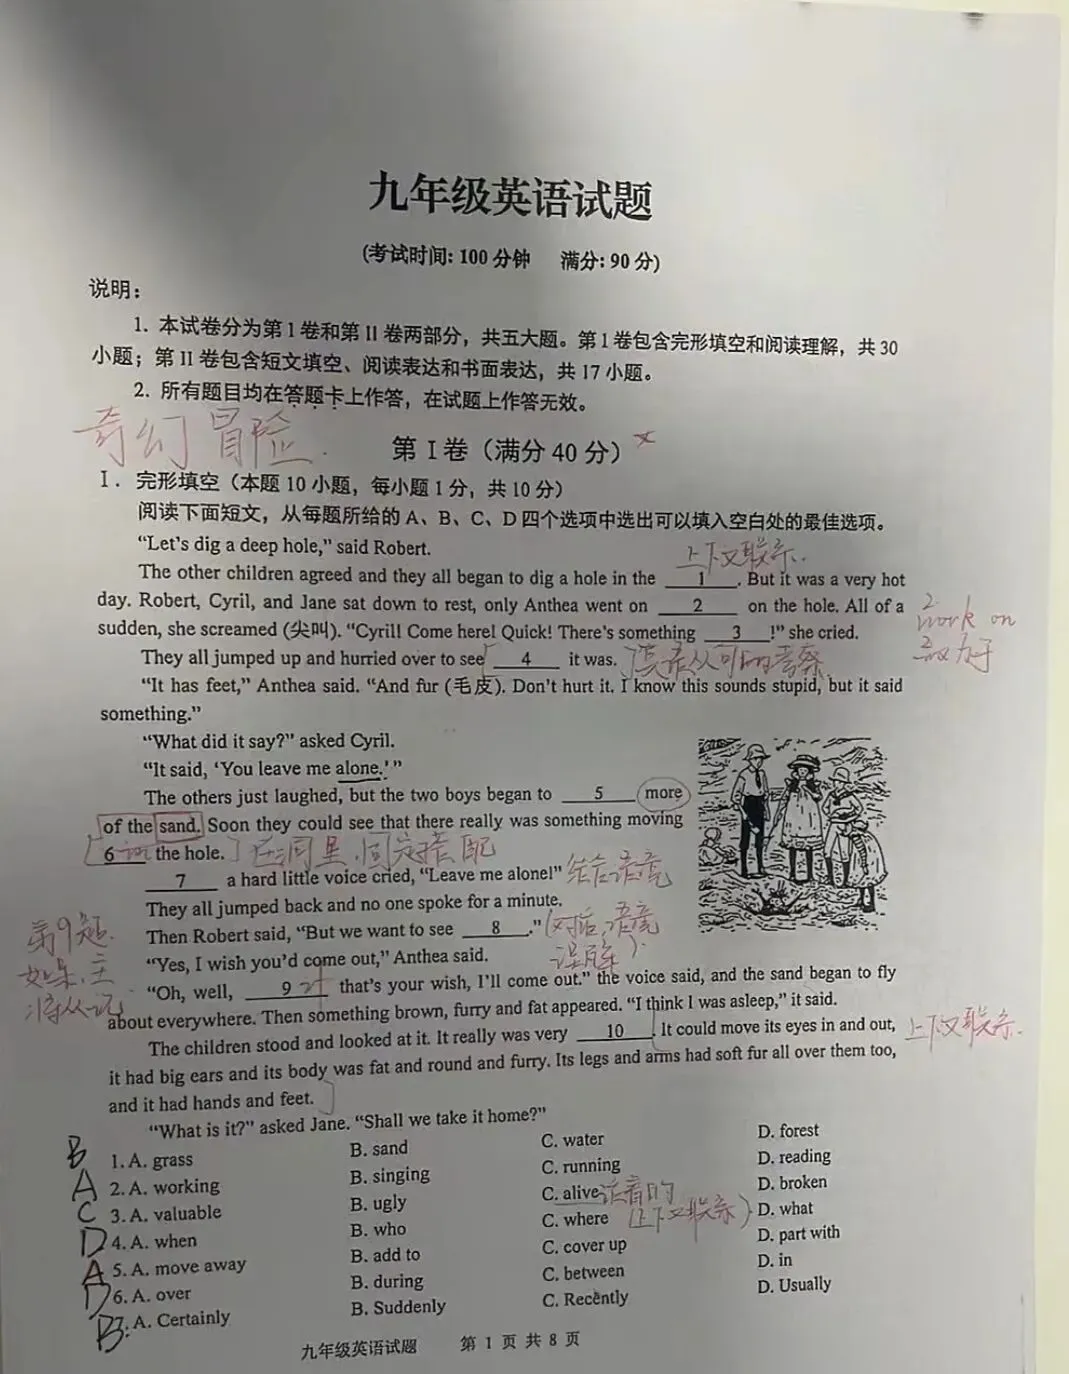 九年级英语试题
(考试时间: 100 分钟 满分: 90 分)
说明：
1. 本试卷分为第 I 卷和第 II 卷两部分，共五大题。第 I 卷包含完形填空和阅读理解，共 30
小题；第 II 卷包含短文填空、阅读表达和书面表达，共 17 小题。
2. 所有题目均在答题卡上作答，在试题上作答无效。
奇幻冒险.
第 I 卷（满分 40 分）
I. 完形填空（本题 10 小题，每小题 1 分，共 10 分）
阅读下面短文，从每题所给的 A、B、C、D 四个选项中选出可以填入空白处的最佳选项。
“Let's dig a deep hole,” said Robert.
上下文联系.
The other children agreed and they all began to dig a hole in the 1 . But it was a very hot
day. Robert, Cyril, and Jane sat down to rest, only Anthea went on 2 on the hole. All of a
2 work on
致力于
sudden, she screamed (尖叫). “Cyril! Come here! Quick! There's something 3 !” she cried.
They all jumped up and hurried over to see 4 it was. 宾语从句的考察
“It has feet,” Anthea said. “And fur (毛皮). Don't hurt it. I know this sounds stupid, but it said
something.”
“What did it say?” asked Cyril.
“It said, ‘You leave me alone.’ ”
The others just laughed, but the two boys began to 5 more
of the sand. Soon they could see that there really was something moving
6 the hole. 在洞里,固定搭配
7 a hard little voice cried, “Leave me alone!” 结合语境
They all jumped back and no one spoke for a minute.
Then Robert said, “But we want to see 8 .”
“Yes, I wish you'd come out,” Anthea said.
第9题.
如果,主
将从现
“Oh, well, 9 that's your wish, I'll come out.” the voice said, and the sand began to fly
about everywhere. Then something brown, furry and fat appeared. “I think I was asleep,” it said.
The children stood and looked at it. It really was very 10 . It could move its eyes in and out, 上下文联系.
it had big ears and its body was fat and round and furry. Its legs and arms had soft fur all over them too,
and it had hands and feet.
“What is it?” asked Jane. “Shall we take it home?”
B 1. A. grass B. sand C. water D. forest
A 2. A. working B. singing C. running D. reading
C 3. A. valuable B. ugly C. alive 活着的 (上下文联系) D. broken
D 4. A. when B. who C. where D. what
A 5. A. move away B. add to C. cover up D. part with
D 6. A. over B. during C. between D. in
B 7. A. Certainly B. Suddenly C. Recently D. Usually
九年级英语试题 第 1 页 共 8 页